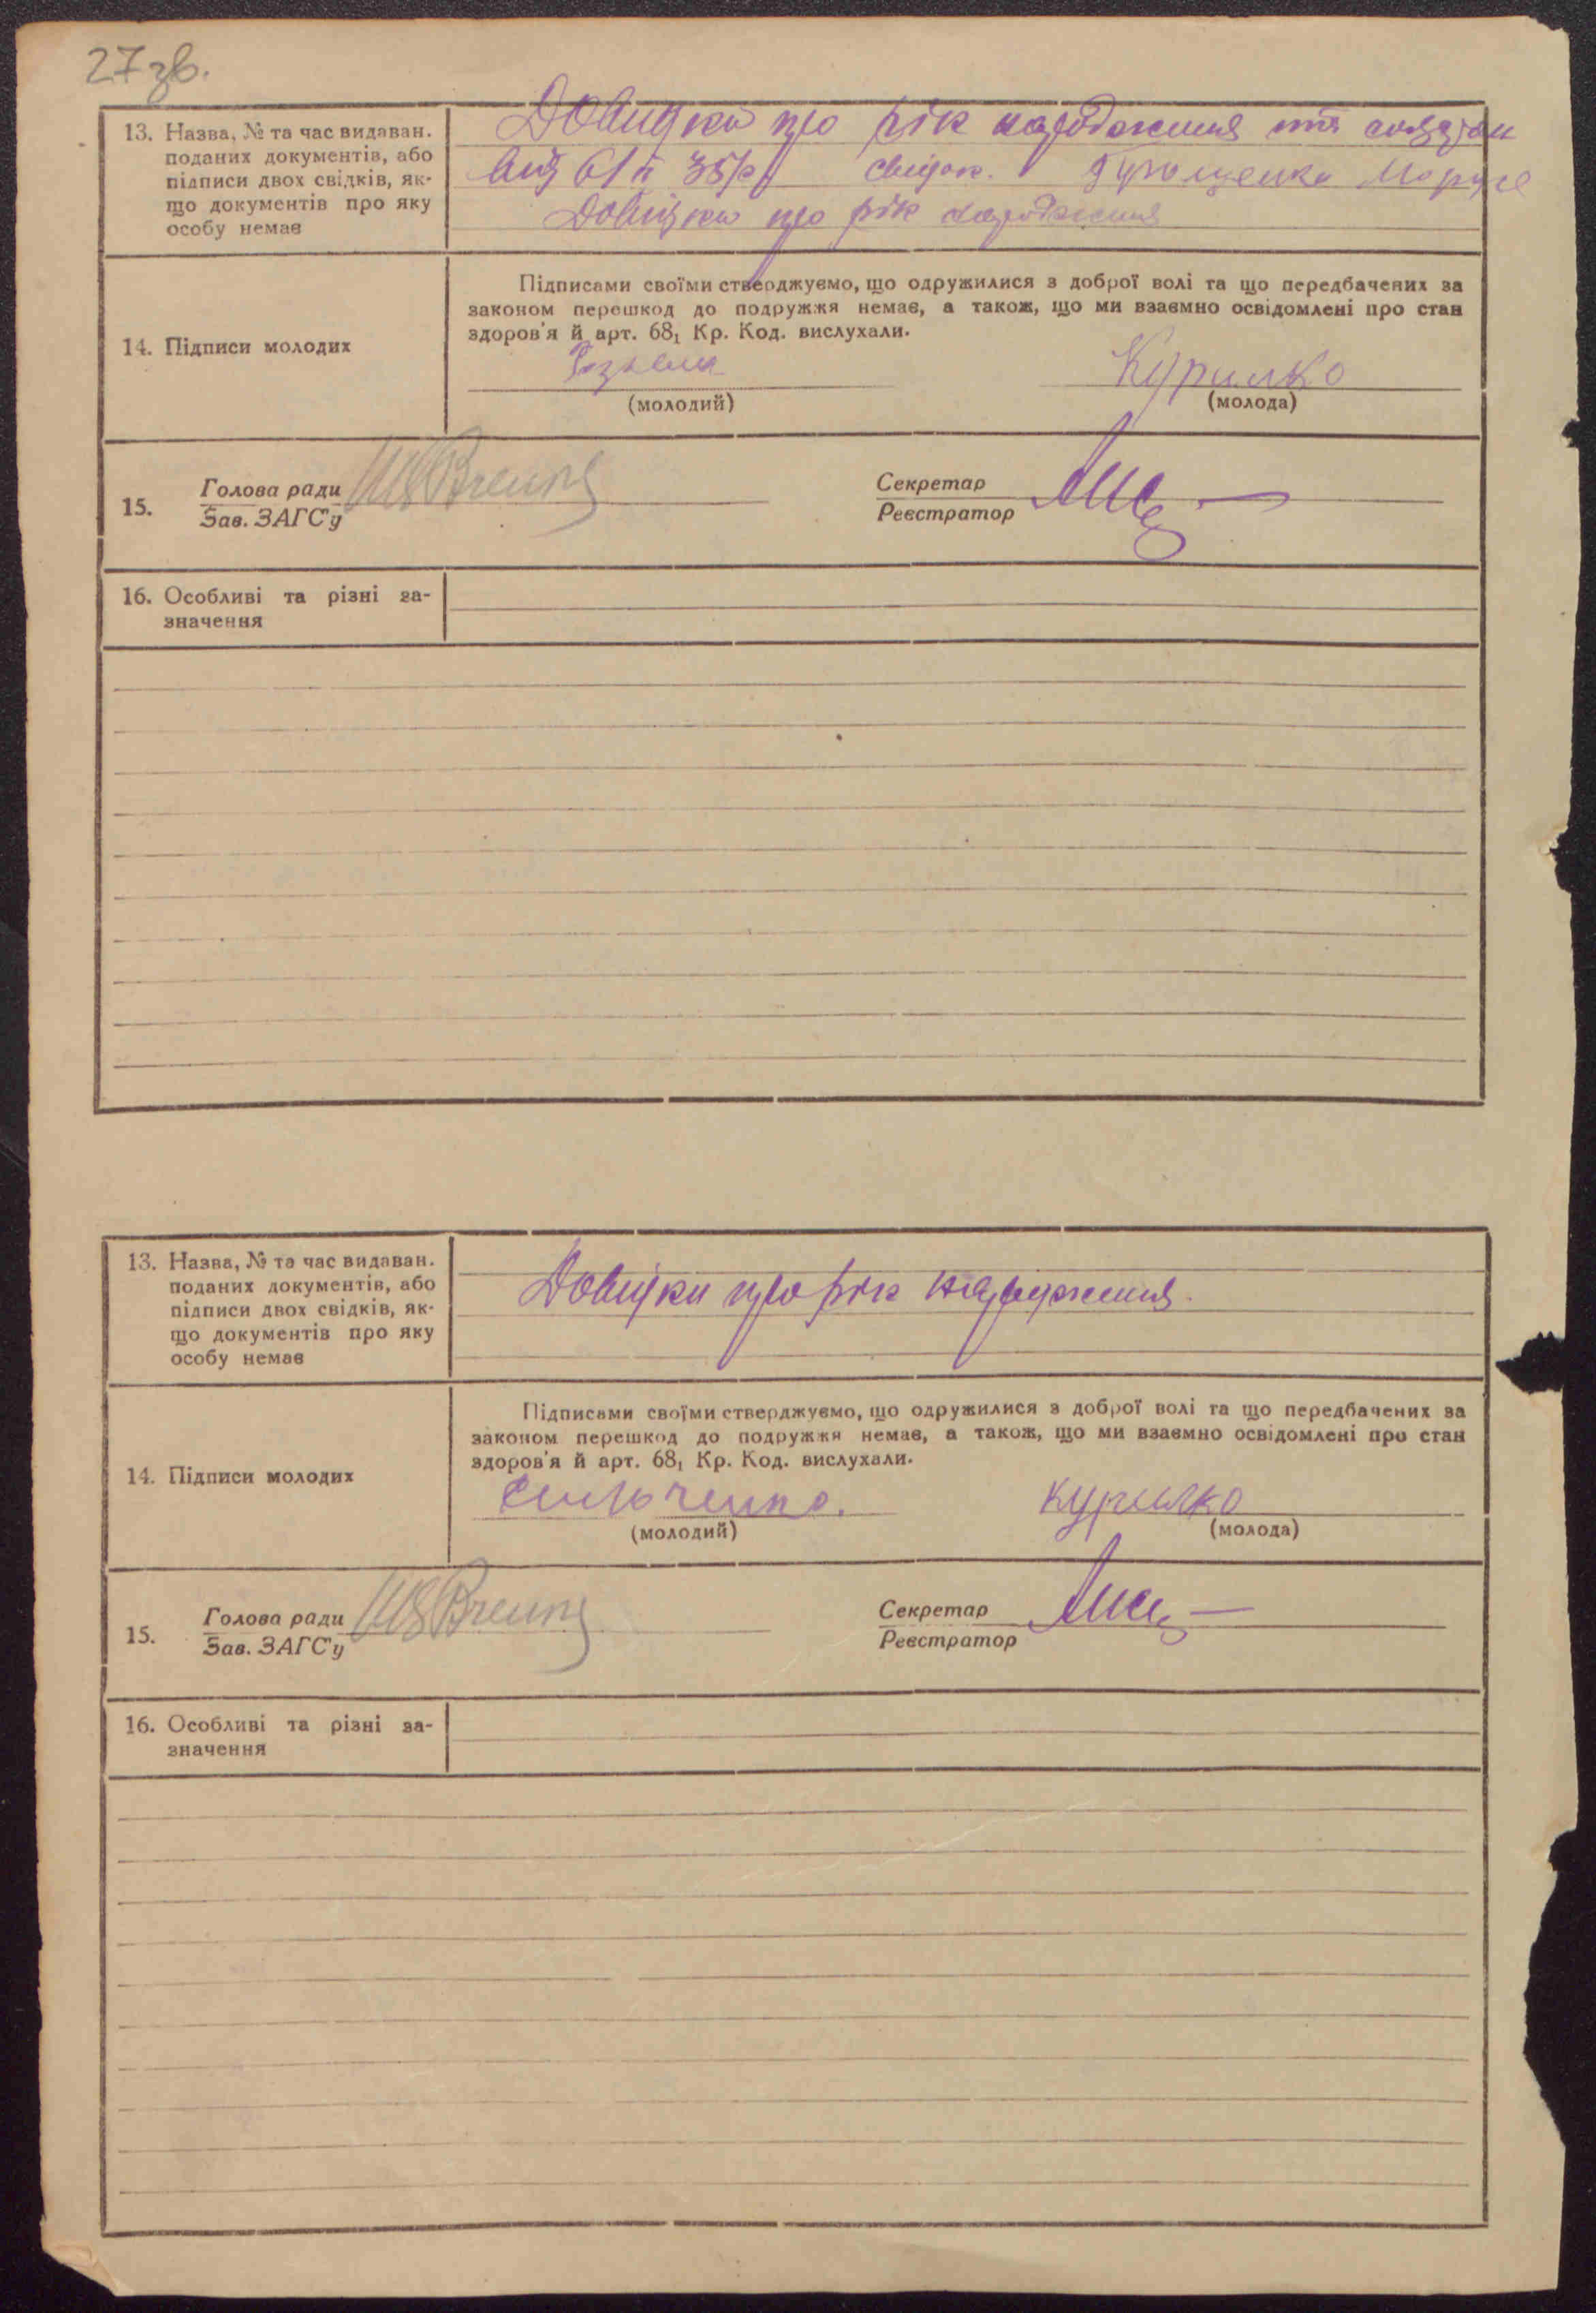 27 зв.
13. Назва, № та час видаван.
поданих документів, або
підписи двох свідків, як-
що документів про яку
особу немає
Довидки про рік народження та
від 35р свідок. Марусе
Довидки про рік народження
14. Підписи молодих
Підписами своїми стверджуємо, що одружилися з доброї волі та що передбачених за
законом перешкод до подружжя немає, а також, що ми взаємно освідомлені про стан
здоров'я й арт. 68₁ Кр. Код. вислухали.
Курилко
(молодий) (молода)
15. Голова ради
Зав. ЗАГС'у
Секретар
Реєстратор
16. Особливі та різні за-
значення
13. Назва, № та час видаван.
поданих документів, або
підписи двох свідків, як-
що документів про яку
особу немає
Довидки про рік народження.
14. Підписи молодих
Підписами своїми стверджуємо, що одружилися з доброї волі та що передбачених за
законом перешкод до подружжя немає, а також, що ми взаємно освідомлені про стан
здоров'я й арт. 68₁ Кр. Код. вислухали.
Курилко
(молодий) (молода)
15. Голова ради
Зав. ЗАГС'у
Секретар
Реєстратор
16. Особливі та різні за-
значення